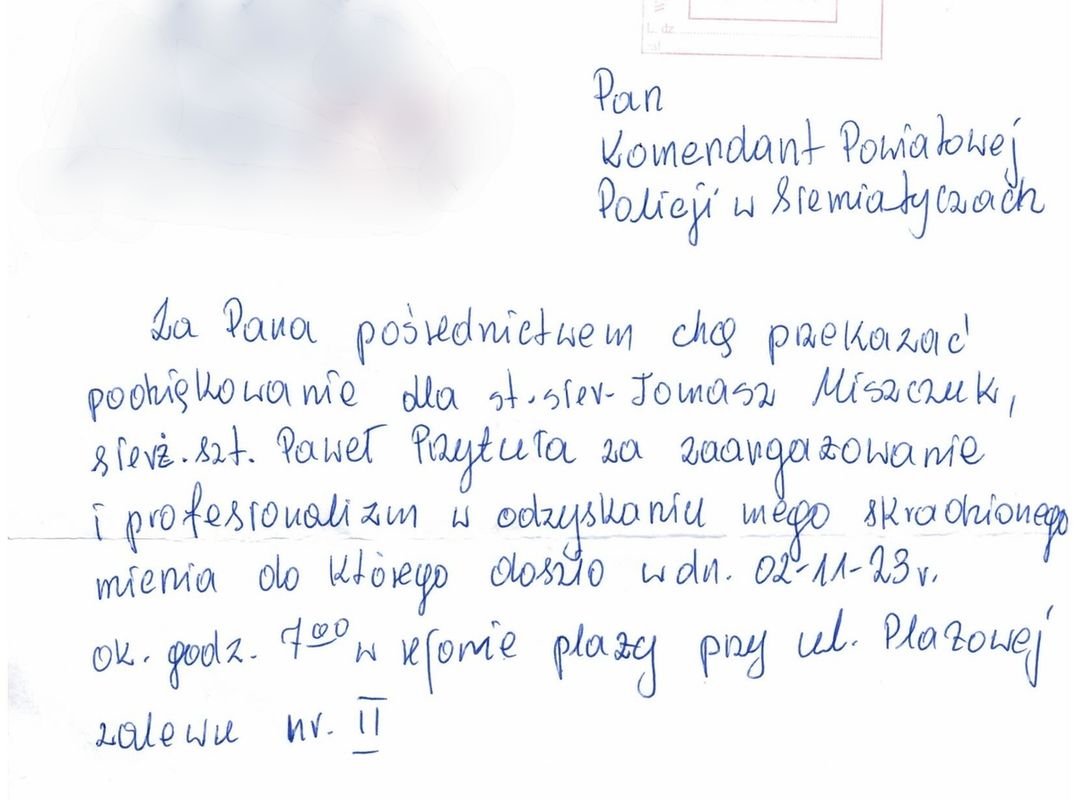 L. dz.
Pan
Komendant Powiatowej
Policji w Siemiatyczach
Za Pana pośrednictwem chcę przekazać
podziękowanie dla st. sier- Tomasz Miszczuk,
sierż. szt. Paweł Przytuła za zaangażowanie
i profesionalizm w odzyskaniu mego skradzionego
mienia do którego doszło w dn. 02-11-23 r.
ok. godz. 7⁰⁰ w rejonie plaży przy ul. Plażowej
zalewu nr. II